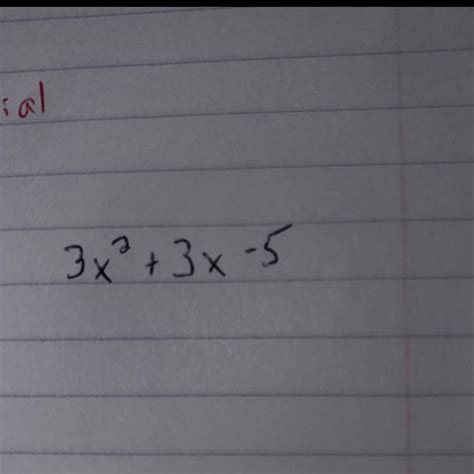 ial
3x² + 3x - 5